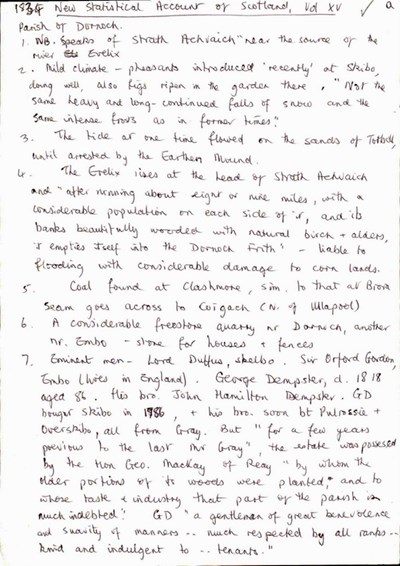 1834 New Statistical Account of Scotland, Vol XV a
Parish of Dornoch.
1. NB. Speaks of Strath Achvaich "near the source of the
river Evelix
2. Mild climate - pheasants introduced 'recently' at Skibo,
doing well, also figs ripen in the garden there, "Not the
same heavy and long-continued falls of snow and the
same intense frosts as in former times."
3. The tide at one time flowed on the sands of
until arrested by the Earthen Mound.
4. The Evelix rises at the head of Strath Achvaich
and "after running about eight or nine miles, with a
considerable population on each side of it, and its
banks beautifully wooded with natural birch + alders,
it empties itself into the Dornoch Frith' - liable to
flooding with considerable damage to corn lands.
5. Coal found at Clashmore, sim. to that at Brora
Seam goes across to Coigach (N. of Ullapool)
6. A considerable freestone quarry nr Dornoch, another
nr. Embo - stone for houses + fences
7. Eminent men - Lord Duffus, Skelbo. Sir Orford Gordon,
Embo (lives in England). George Dempster, d. 1818
aged 86. His bro. John Hamilton Dempster. GD
bought Skibo in 1786, + his bro. soon bt Pulrossie +
Overskibo, all from Gray. But "for a few years
previous to the last Mr Gray", the estate was possessed
by the Hon Geo. MacKay of Reay "by whom the
older portions of its woods were planted," and to
whose taste & industry that part of the parish is
much indebted." GD "a gentleman of great benevolence
and suavity of manners .. much respected by all ranks ..
kind and indulgent to .. tenants."